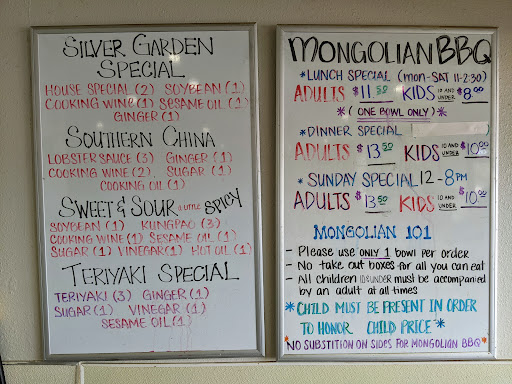 SILVER GARDEN
SPECIAL
HOUSE SPECIAL (2) SOYBEAN (1)
COOKING WINE (1) SESAME OIL (1)
GINGER (1)
SOUTHERN CHINA
LOBSTER SAUCE (3) GINGER (1)
COOKING WINE (2), SUGAR (1)
COOKING OIL (1)
SWEET & SOUR a little SPICY
SOYBEAN (1) KUNGPAO (3)
COOKING WINE (1) SESAME OIL (1)
SUGAR (1) VINEGAR (1) HOT OIL (1)
TERIYAKI SPECIAL
TERIYAKI (3) GINGER (1)
SUGAR (1) VINEGAR (1)
SESAME OIL (1)
MONGOLIAN BBQ
*LUNCH SPECIAL (MON-SAT 11-2:30)
ADULTS $11.50 KIDS 10 AND UNDER $8.00
*(ONE BOWL ONLY)*
*DINNER SPECIAL
ADULTS $13.50 KIDS 10 AND UNDER $10.00
*SUNDAY SPECIAL 12-8PM
ADULTS $13.50 KIDS 10 AND UNDER $10.00
MONGOLIAN 101
- Please use ONLY 1 bowl per order
- No take out boxes for all you can eat
- All children 10 & UNDER must be accompanied
by an adult at all times
*CHILD MUST BE PRESENT IN ORDER
TO HONOR CHILD PRICE*
*NO SUBSTITION ON SIDES FOR MONGOLIAN BBQ*